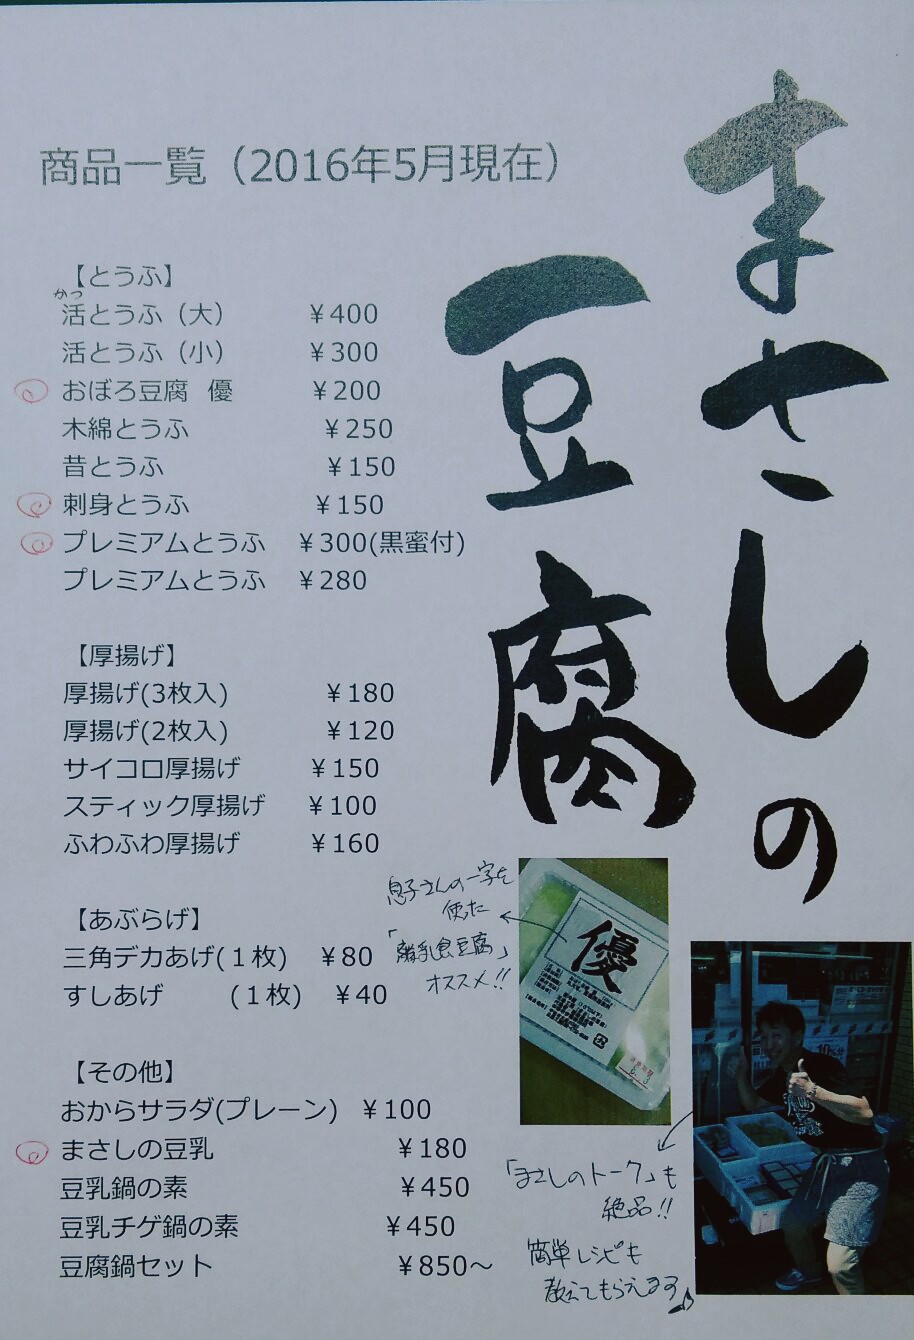 まさしの
豆腐
商品一覧（2016年5月現在）
【とうふ】
かつ
活とうふ（大） ￥400
活とうふ（小） ￥300
おぼろ豆腐 優 ￥200
木綿とうふ ￥250
昔とうふ ￥150
刺身とうふ ￥150
プレミアムとうふ ￥300(黒蜜付)
プレミアムとうふ ￥280
【厚揚げ】
厚揚げ(3枚入) ￥180
厚揚げ(2枚入) ￥120
サイコロ厚揚げ ￥150
スティック厚揚げ ￥100
ふわふわ厚揚げ ￥160
【あぶらげ】
三角デカあげ(１枚) ￥80
すしあげ (１枚) ￥40
【その他】
おからサラダ(プレーン) ￥100
まさしの豆乳 ￥180
豆乳鍋の素 ￥450
豆乳チゲ鍋の素 ￥450
豆腐鍋セット ￥850～
息子さんの一字を
使った
「離乳食豆腐」
オススメ!!
優
「まさしのトーク」も
絶品!!
簡単レシピも
教えてもらえます♪